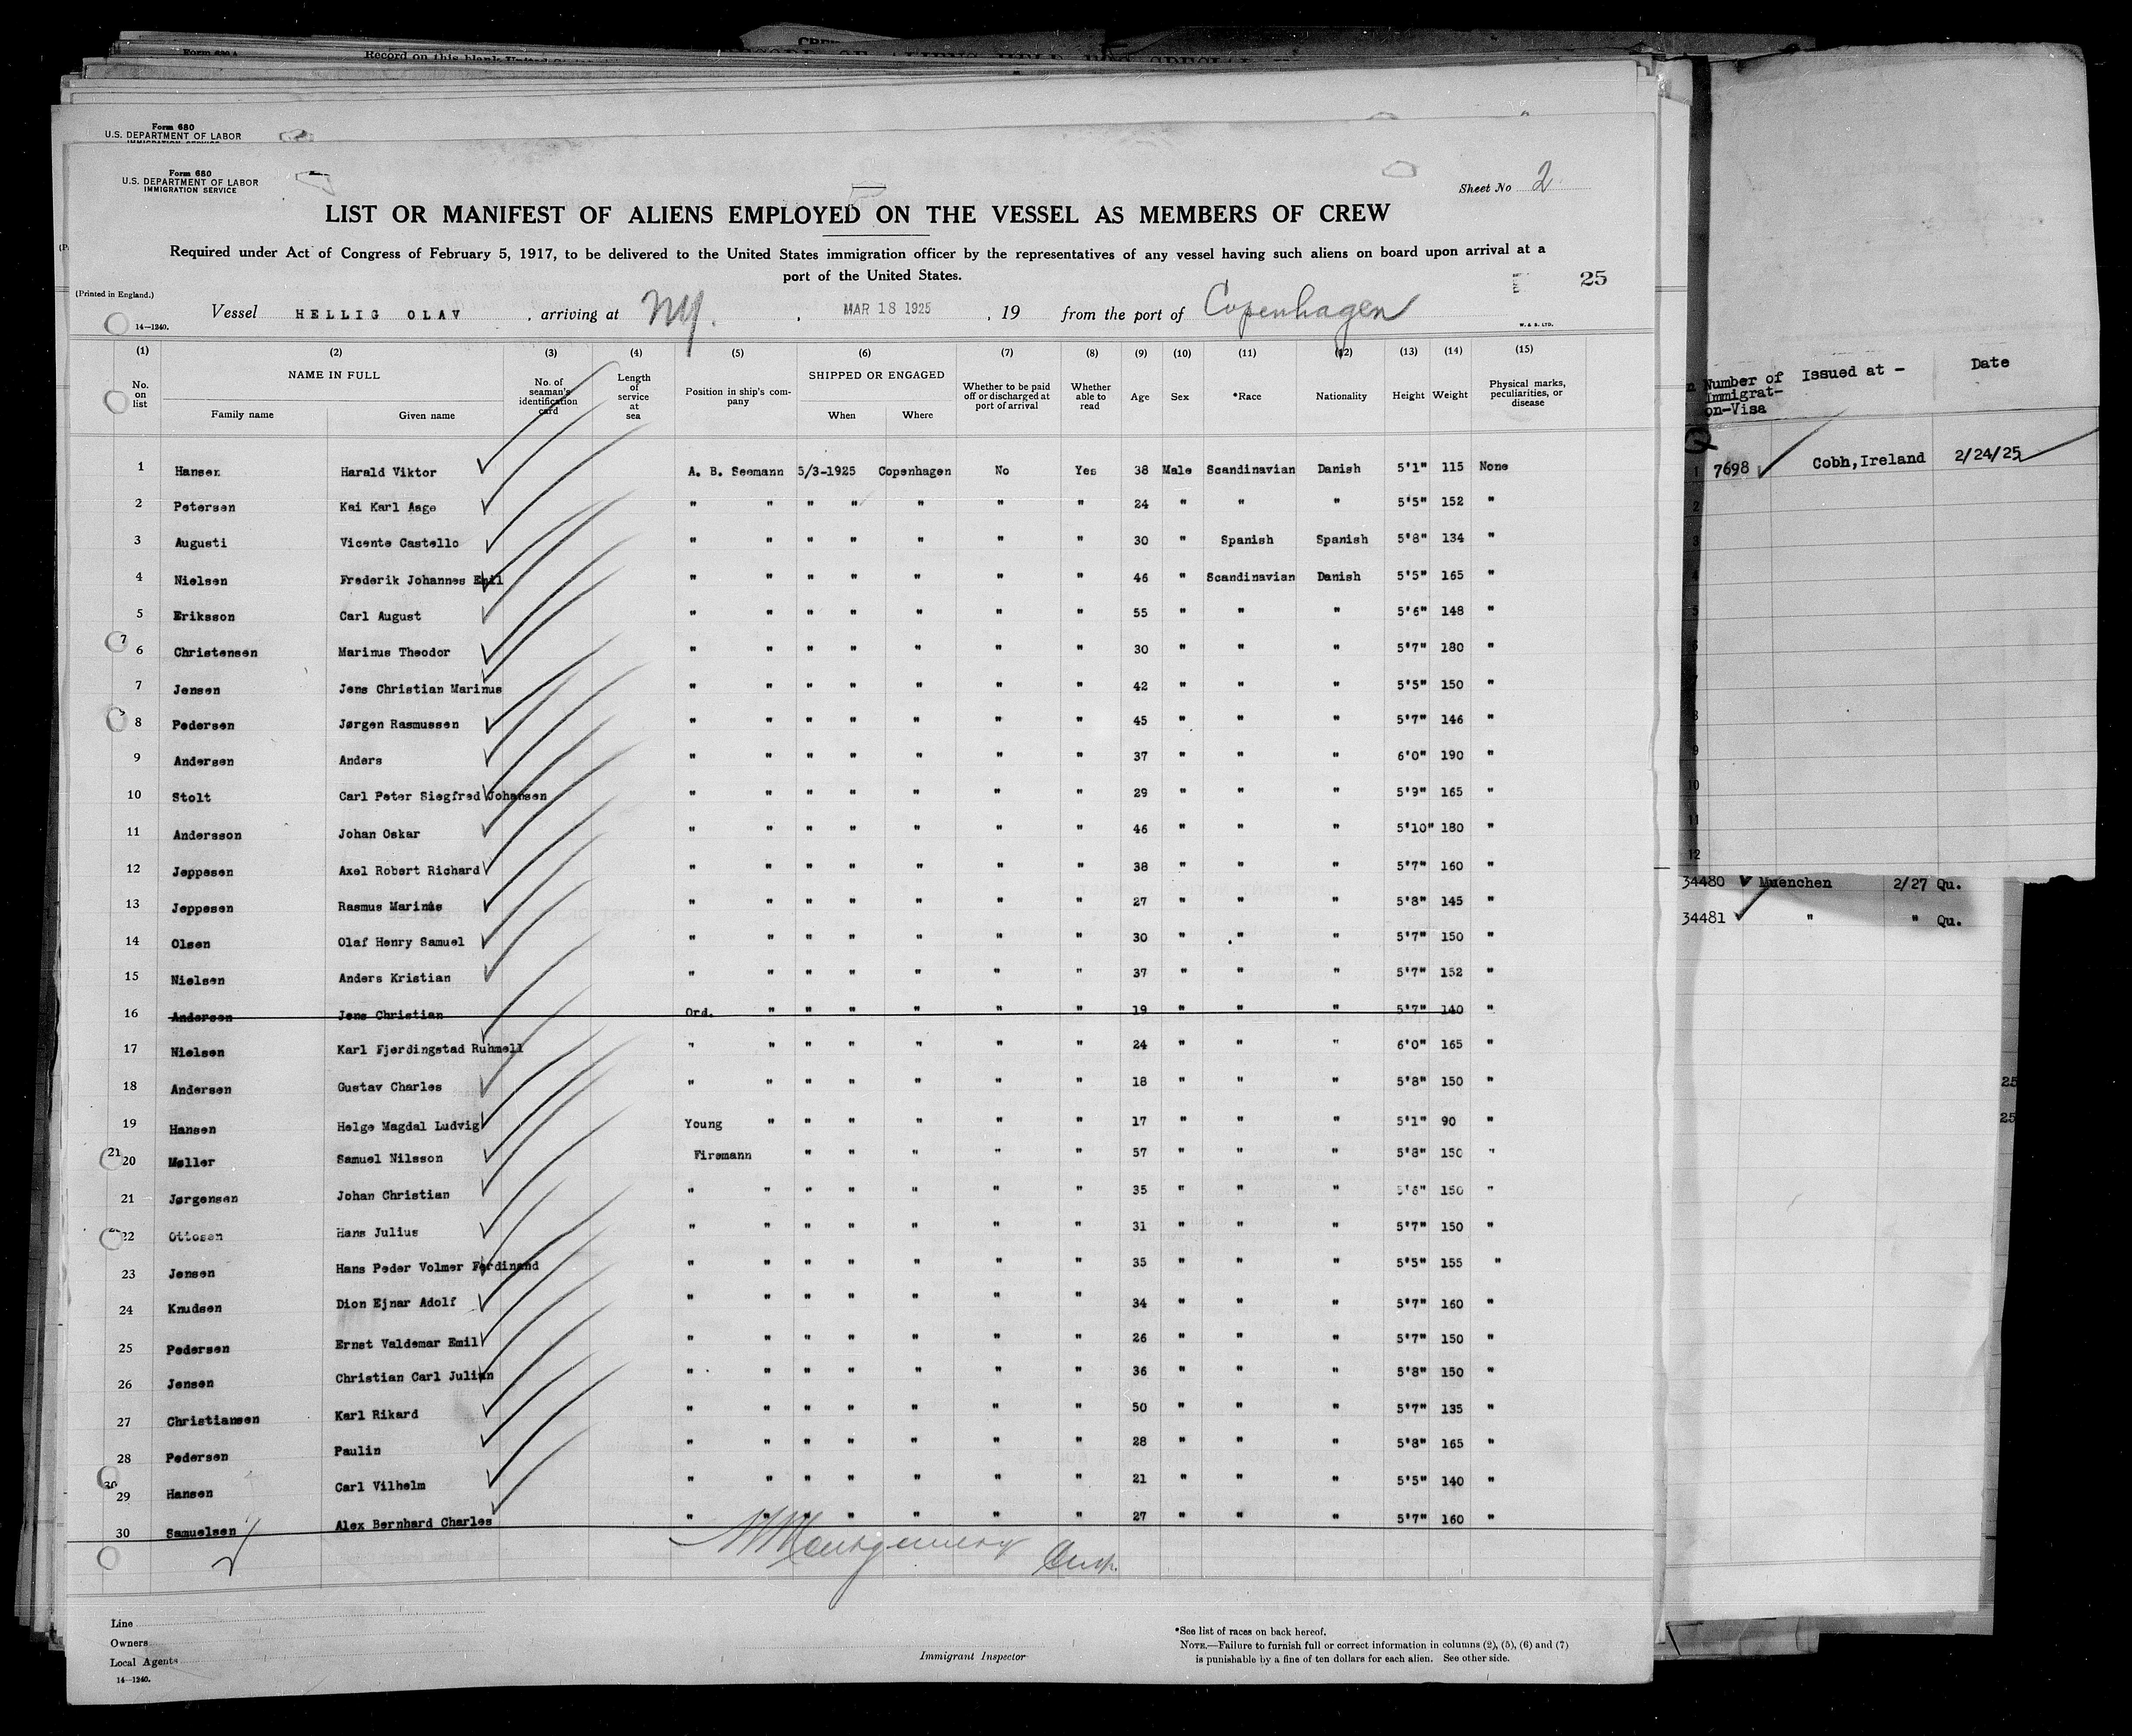 Form 680
U.S. DEPARTMENT OF LABOR
Form 680
U.S. DEPARTMENT OF LABOR
IMMIGRATION SERVICE
Sheet No 2
LIST OR MANIFEST OF ALIENS EMPLOYED ON THE VESSEL AS MEMBERS OF CREW
Required under Act of Congress of February 5, 1917, to be delivered to the United States immigration officer by the representatives of any vessel having such aliens on board upon arrival at a
port of the United States.
25
(Printed in England.)
Vessel HELLIG OLAV , arriving at NY. , MAR 18 1925 , 19 from the port of Copenhagen
14—1240.
W. & S. LTD.
(1) (2) (3) (4) (5) (6) (7) (8) (9) (10) (11) (12) (13) (14) (15)
No. on list NAME IN FULL Family name Given name No. of seaman's identification card Length of service at sea Position in ship's company SHIPPED OR ENGAGED When Where Whether to be paid off or discharged at port of arrival Whether able to read Age Sex *Race Nationality Height Weight Physical marks, peculiarities, or disease
1 Hansen Harald Viktor A. B. Seemann 5/3-1925 Copenhagen No Yes 38 Male Scandinavian Danish 5'1" 115 None
2 Petersen Kai Karl Aage " " " " " " " 24 " " " 5'5" 152 "
3 Augusti Vicente Castello " " " " " " " 30 " Spanish Spanish 5'8" 134 "
4 Nielsen Frederik Johannes Emil " " " " " " " 46 " Scandinavian Danish 5'5" 165 "
5 Eriksson Carl August " " " " " " " 55 " " " 5'6" 148 "
7 6 Christensen Marinus Theodor " " " " " " " 30 " " " 5'7" 180 "
7 Jensen Jens Christian Marinus " " " " " " " 42 " " " 5'5" 150 "
8 Pedersen Jørgen Rasmussen " " " " " " " 45 " " " 5'7" 146 "
9 Andersen Anders " " " " " " " 37 " " " 6'0" 190 "
10 Stolt Carl Peter Siegfred Johansen " " " " " " " 29 " " " 5'9" 165 "
11 Andersson Johan Oskar " " " " " " " 46 " " " 5'10" 180 "
12 Jeppesen Axel Robert Richard " " " " " " " 38 " " " 5'7" 160 "
13 Jeppesen Rasmus Marinus " " " " " " " 27 " " " 5'8" 145 "
14 Olsen Olaf Henry Samuel " " " " " " " 30 " " " 5'7" 150 "
15 Nielsen Anders Kristian " " " " " " " 37 " " " 5'7" 152 "
16 Andersen Jens Christian Ord. " " " " " " 19 " " " 5'7" 140 "
17 Nielsen Karl Fjerdingstad Ruhmell " " " " " " " 24 " " " 6'0" 165 "
18 Andersen Gustav Charles " " " " " " " 18 " " " 5'8" 150 "
19 Hansen Helge Magdal Ludvig Young " " " " " " 17 " " " 5'1" 90 "
21 20 Møller Samuel Nilsson Firemann " " " " " 57 " " " 5'8" 150 "
21 Jørgensen Johan Christian " " " " " " " 35 " " " 5'6" 150 "
22 Ottosen Hans Julius " " " " " " " 31 " " " 5'7" 150 "
23 Jensen Hans Peder Volmer Ferdinand " " " " " " " 35 " " " 5'5" 155 "
24 Knudsen Dion Ejnar Adolf " " " " " " " 34 " " " 5'7" 160 "
25 Pedersen Ernst Valdemar Emil " " " " " " " 26 " " " 5'7" 150 "
26 Jensen Christian Carl Julian " " " " " " " 36 " " " 5'8" 150 "
27 Christiansen Karl Rikard " " " " " " " 50 " " " 5'7" 135 "
28 Pedersen Paulin " " " " " " " 28 " " " 5'8" 165 "
30 29 Hansen Carl Vilhelm " " " " " " " 21 " " " 5'5" 140 "
30 Samuelsen Alex Bernhard Charles " " " " " " " 27 " " " 5'7" 160 "
Montgomery Insp.
Line
Owners
Local Agents
14—1240.
Immigrant Inspector
*See list of races on back hereof.
NOTE.—Failure to furnish full or correct information in columns (2), (5), (6) and (7)
is punishable by a fine of ten dollars for each alien. See other side.
Number of Immigrat-on-Visa Issued at - Date
1 7698 Cobh, Ireland 2/24/25
2
3
4
5
6
7
8
9
10
11
12
34480 Muenchen 2/27 Qu.
34481 " " Qu.
25
25